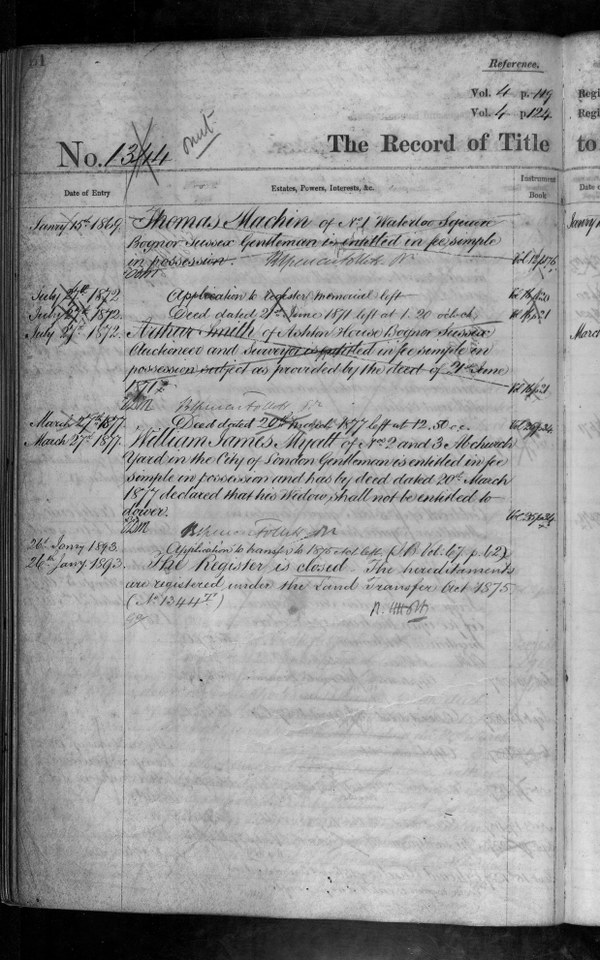 Reference.
Vol. 4 p. 119
Vol. 4 p. 124
No. 1344
The Record of Title
Date of Entry
Estates, Powers, Interests, &c.
Instrument Book
Thomas Machin of No. 1 Waterloo Square
Bognor Sussex Gentleman is entitled in fee simple
in possession.
July 27th 1872 Application to register memorial left
July 27th 1872. Deed dated 21st June 1871 left at 1. 20 oclock
July 27th 1872. Arthur Smith of Ashton House Bognor Sussex
Auctioneer and Surveyor is entitled in fee simple in
possession subject as provided by the deed of 21st June
1871
March 27th 1877. Deed dated 20th March 1877 left at 12.50
March 27th 1877. William James Myatt of Nos 2 and 3 Abchurch
Yard in the City of London Gentleman is entitled in fee
simple in possession and has by deed dated 20th March
1877 declared that his Widow shall not be entitled to
dower.
26th Janry 1893. Application to transfer to 1875 Act left
26th Janry 1893. The Register is closed. The hereditaments
are registered under the Land Transfer Act 1875.
(No. 1344)
Regi
Regi
to
Date o